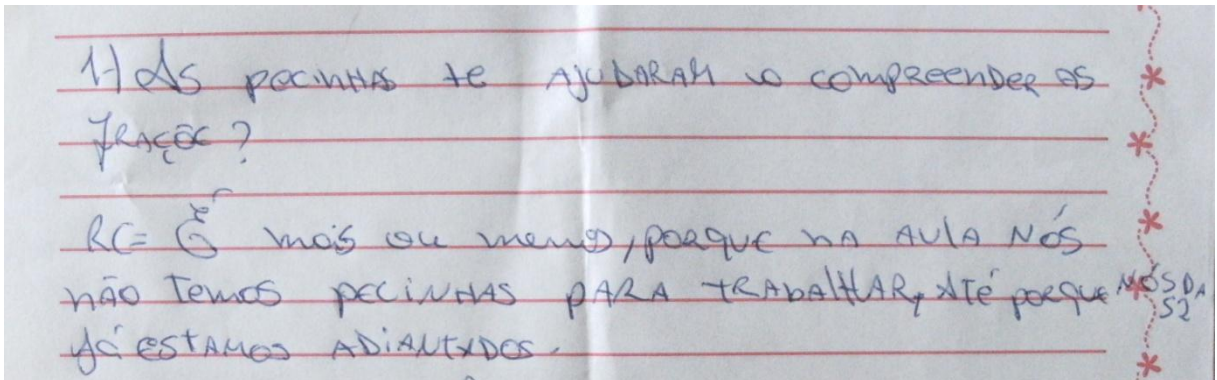 1-) As pecinhas te AJUDARAM a compreender as
frações?
R(= É mais ou menos, porque na AULA Nós
não Temos pecinhas para trabalhar, Até porque NÓS DA 52
Já estamos adiantados.